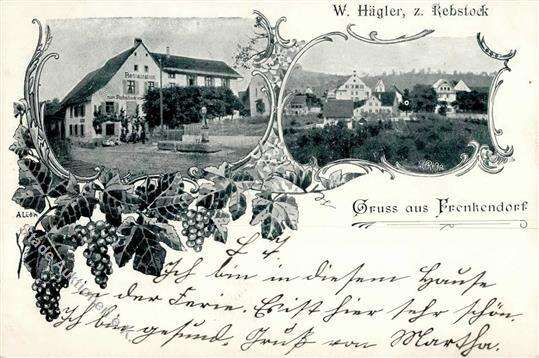 W. Hägler, z. Rebstock
Restauration
zum Rebstock
Gruss aus Frenkendorf
A Lion
L. F.
Ich bin in diesem Hause
in der Ferie. Es ist hier sehr schön.
Ich bin gesund. Gruß von Martha.